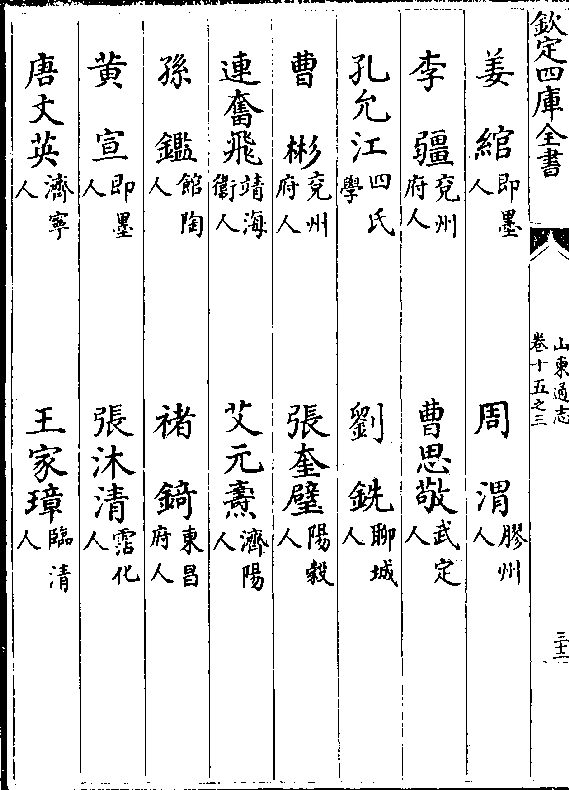 欽定四庫全書
山東通志
卷十五之三
三十二
姜綰即墨人 周渭膠州人
李疆兖州府人 曹思敬武定人
孔允江四氏學 劉銑聊城人
曹彬兖州府人 張奎璧陽穀人
連奮飛靖海衛人 艾元燾濟陽人
孫鑑館陶人 褚錡東昌府人
黄宣即墨人 張沐清霑化人
唐文英濟寧人 王家璋臨清人